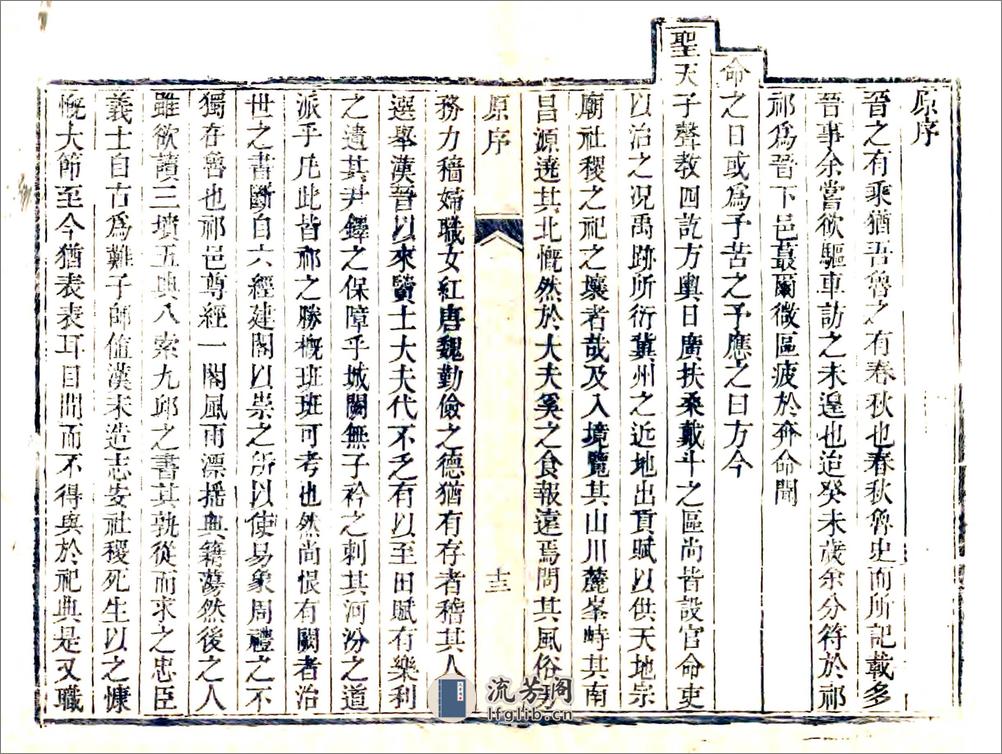 原序
晉之有乘猶吾魯之有春秋也春秋魯史而所記載多
晉事余嘗欲驅車訪之未遑也迨癸未歲余分符於祁
祁爲晉下邑蕞爾微區疲於奔命聞
命之日或爲予苦之予應之曰方今
聖天子聲教四訖方輿日廣扶桑戴斗之區尚皆設官命吏
以治之况禹跡所衍冀州之近地出貢賦以供天地宗
廟社稷之祀之壤者哉及入境覽其山川麓峯峙其南
昌源遶其北慨然於大夫奚之食報遠焉問其風俗男
原序
十三
務力穡婦職女紅唐魏勤儉之德猶有存者稽其人
選舉漢晉以來賢士大夫代不乏有以至田賦有樂利
之遺其尹鐸之保障乎城闕無子衿之刺其河汾之道
派乎凡此皆祁之勝概班班可考也然尚恨有闕者治
世之書斷自六經建閣以崇之所以使易象周禮之不
獨存魯也祁邑尊經一閣風雨漂搖典籍蕩然後之人
雖欲讀三墳五典八索九邱之書其孰從而求之忠臣
義士自古爲難子師值漢末造志安社稷死生以之慷
慨大節至今猶表表耳目間而不得與於祀典是又職
流芳阁
lfglib.cn